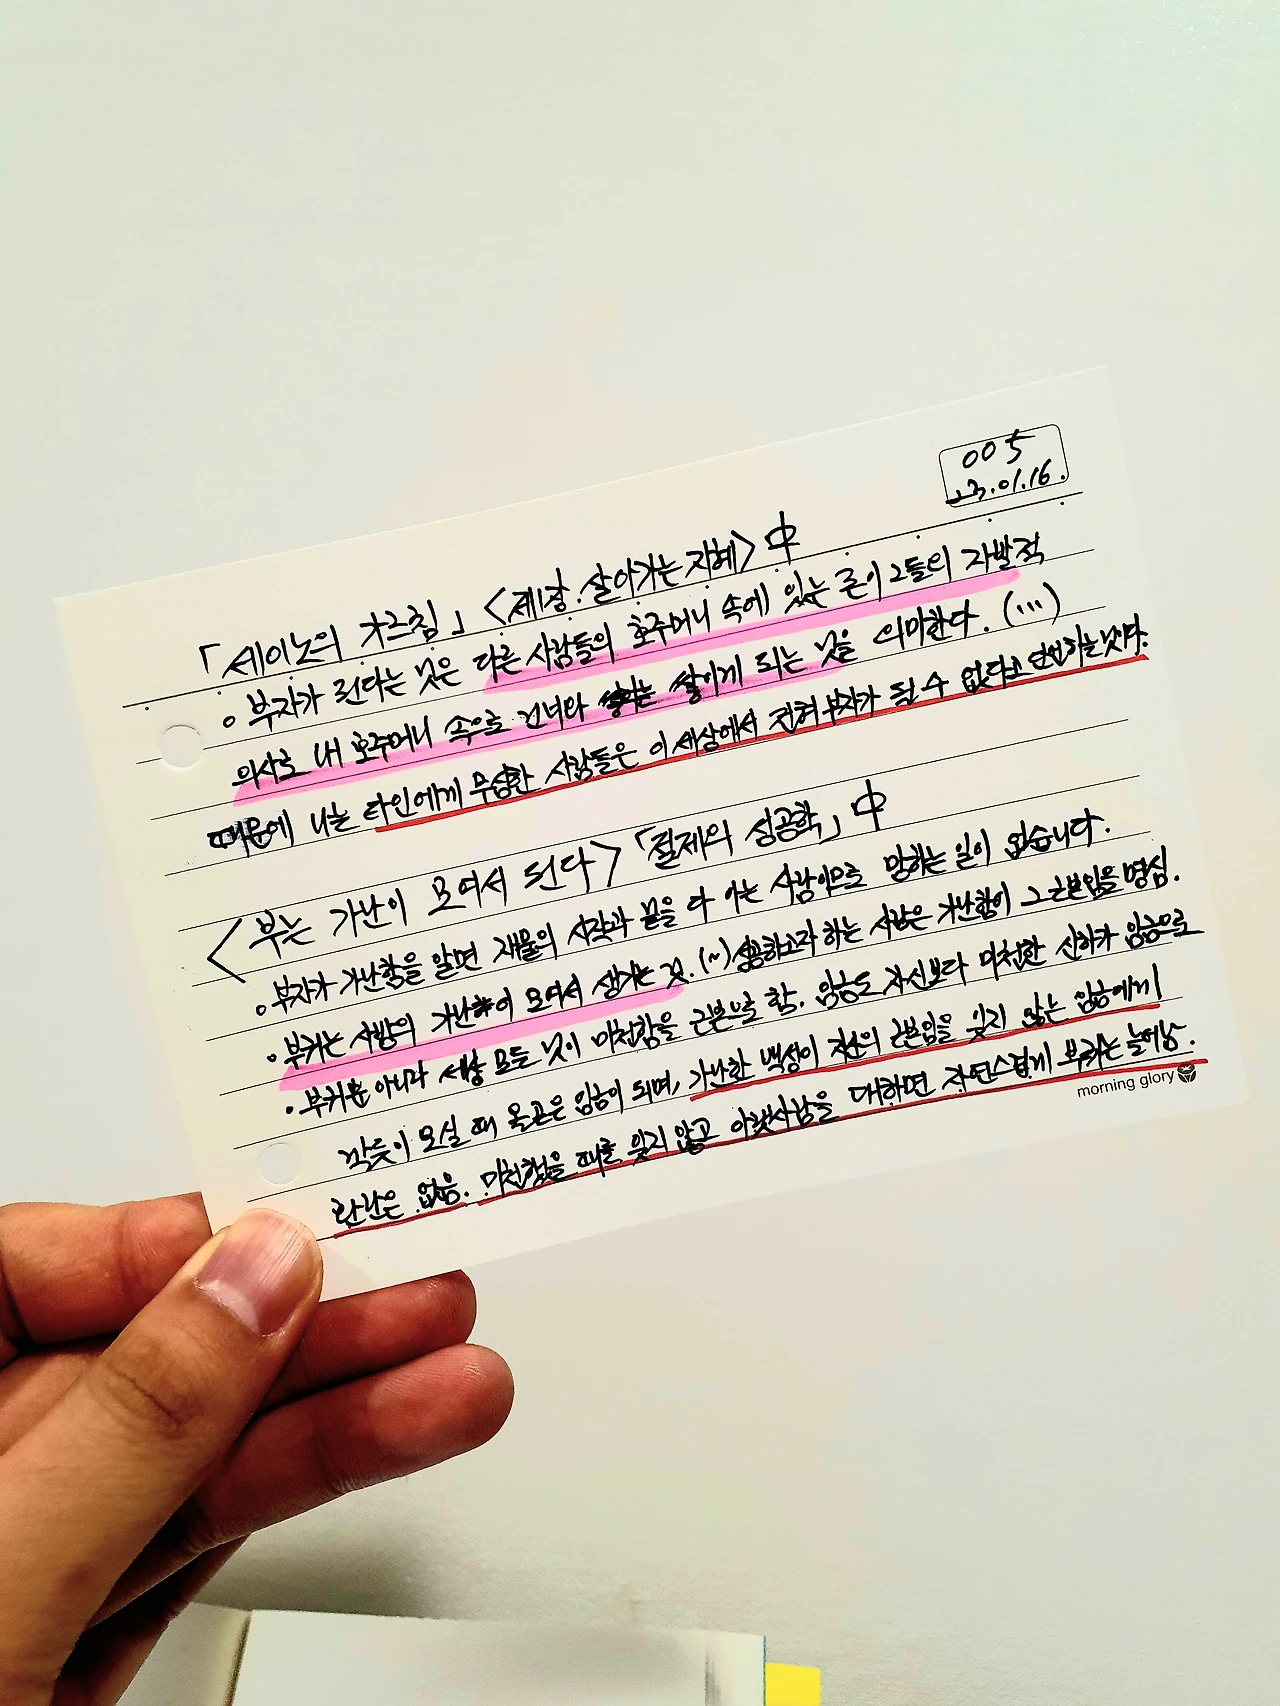 005
23.01.16.
「세이노의 가르침」 <제1장. 살아가는 지혜> 中
◦ 부자가 된다는 것은 다른 사람들의 호주머니 속에 있는 돈이 그들의 자발적
의사로 내 호주머니 속으로 건너와 쌓이게 되는 것을 의미한다. (...)
때문에 나는 타인에게 무심한 사람들은 이 세상에서 전혀 부자가 될 수 없다고 단언하는 것이다.
<부는 가난이 모여서 된다> 「절제의 성공학」 中
◦ 부자가 가난함을 알면 재물의 시작과 끝을 다 아는 사람이므로 망하는 일이 없습니다.
• 부귀는 사방의 가난함이 모여서 생기는 것. (~) 성공하고자 하는 사람은 가난함이 그 근본임을 명심.
• 부귀뿐 아니라 세상 모든 것이 미천함을 근본으로 함. 임금도 자신보다 미천한 신하가 임금으로
깍듯이 모실 때 옥곤은 임금이 되며, 가난한 백성이 자신의 근본임을 잊지 않는 임금에게
환난은 없음. 미천했을 때를 잊지 않고 아랫사람을 대하면 자연스럽게 부귀는 늘어남.
morning glory